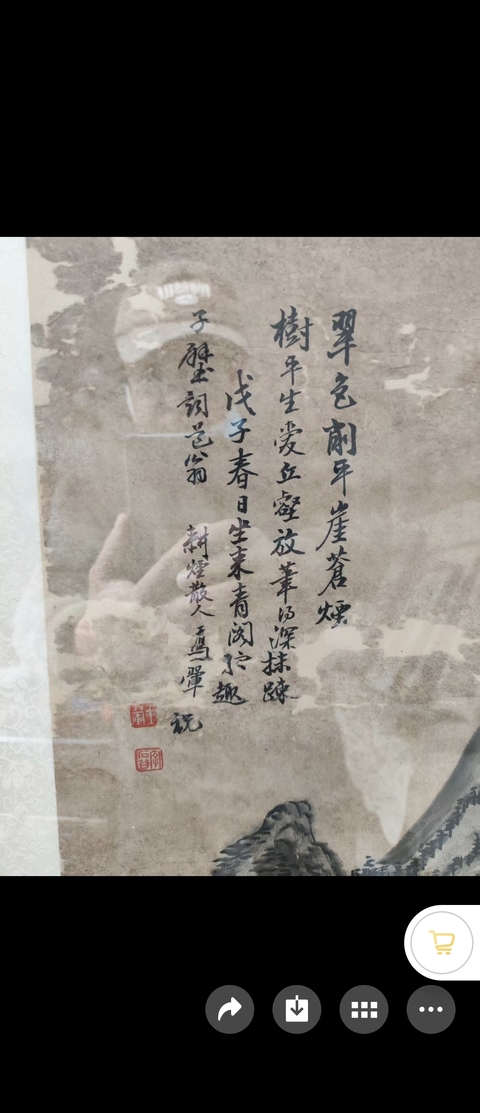 翠色削平崖蒼煙
樹平生愛丘壑放筆深抹疎
戊子春日坐來青閣趣
子壁詞翁
耕煙散人翬